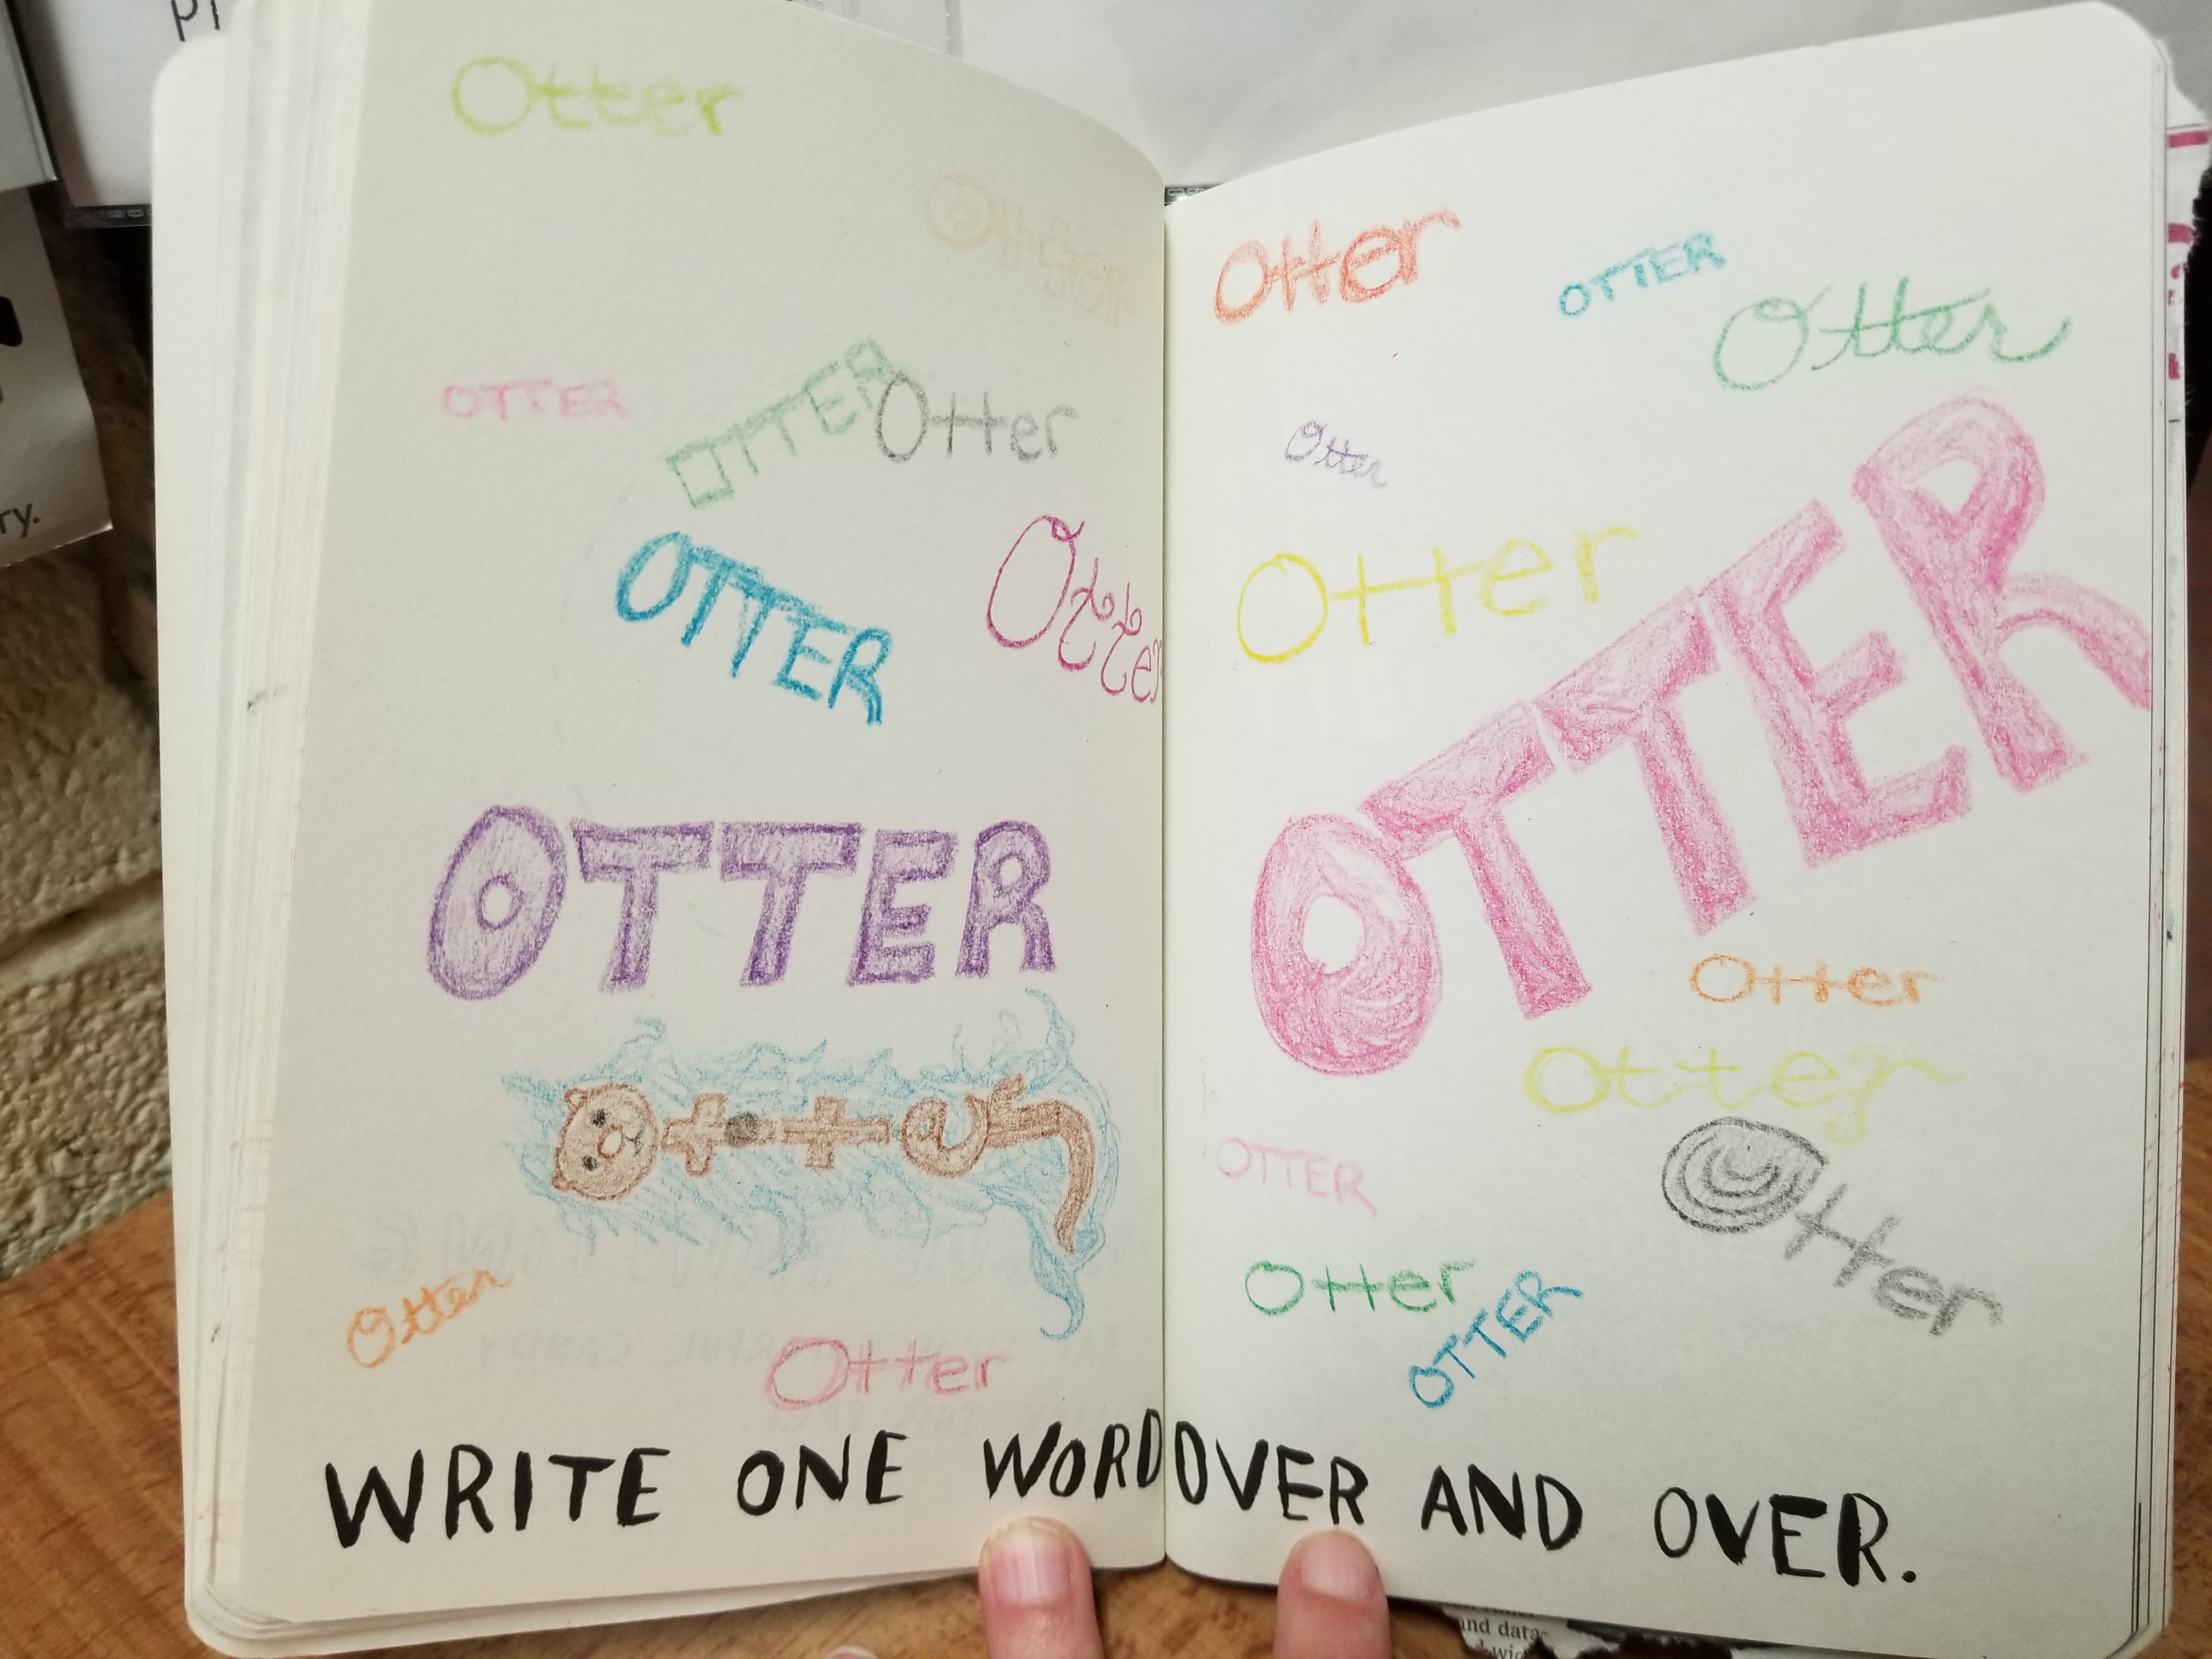 Otter
Otter
OTTER
OTTER
Otter
OTTER
Otter
OTTER
otter
Otter
Otter
WRITE ONE WORD
Otter
OTTER
Otter
Otter
Otter
OTTER
Otter
Otter
OTTER
Otter
Otter
OTTER
OVER AND OVER.
ry.
and data-